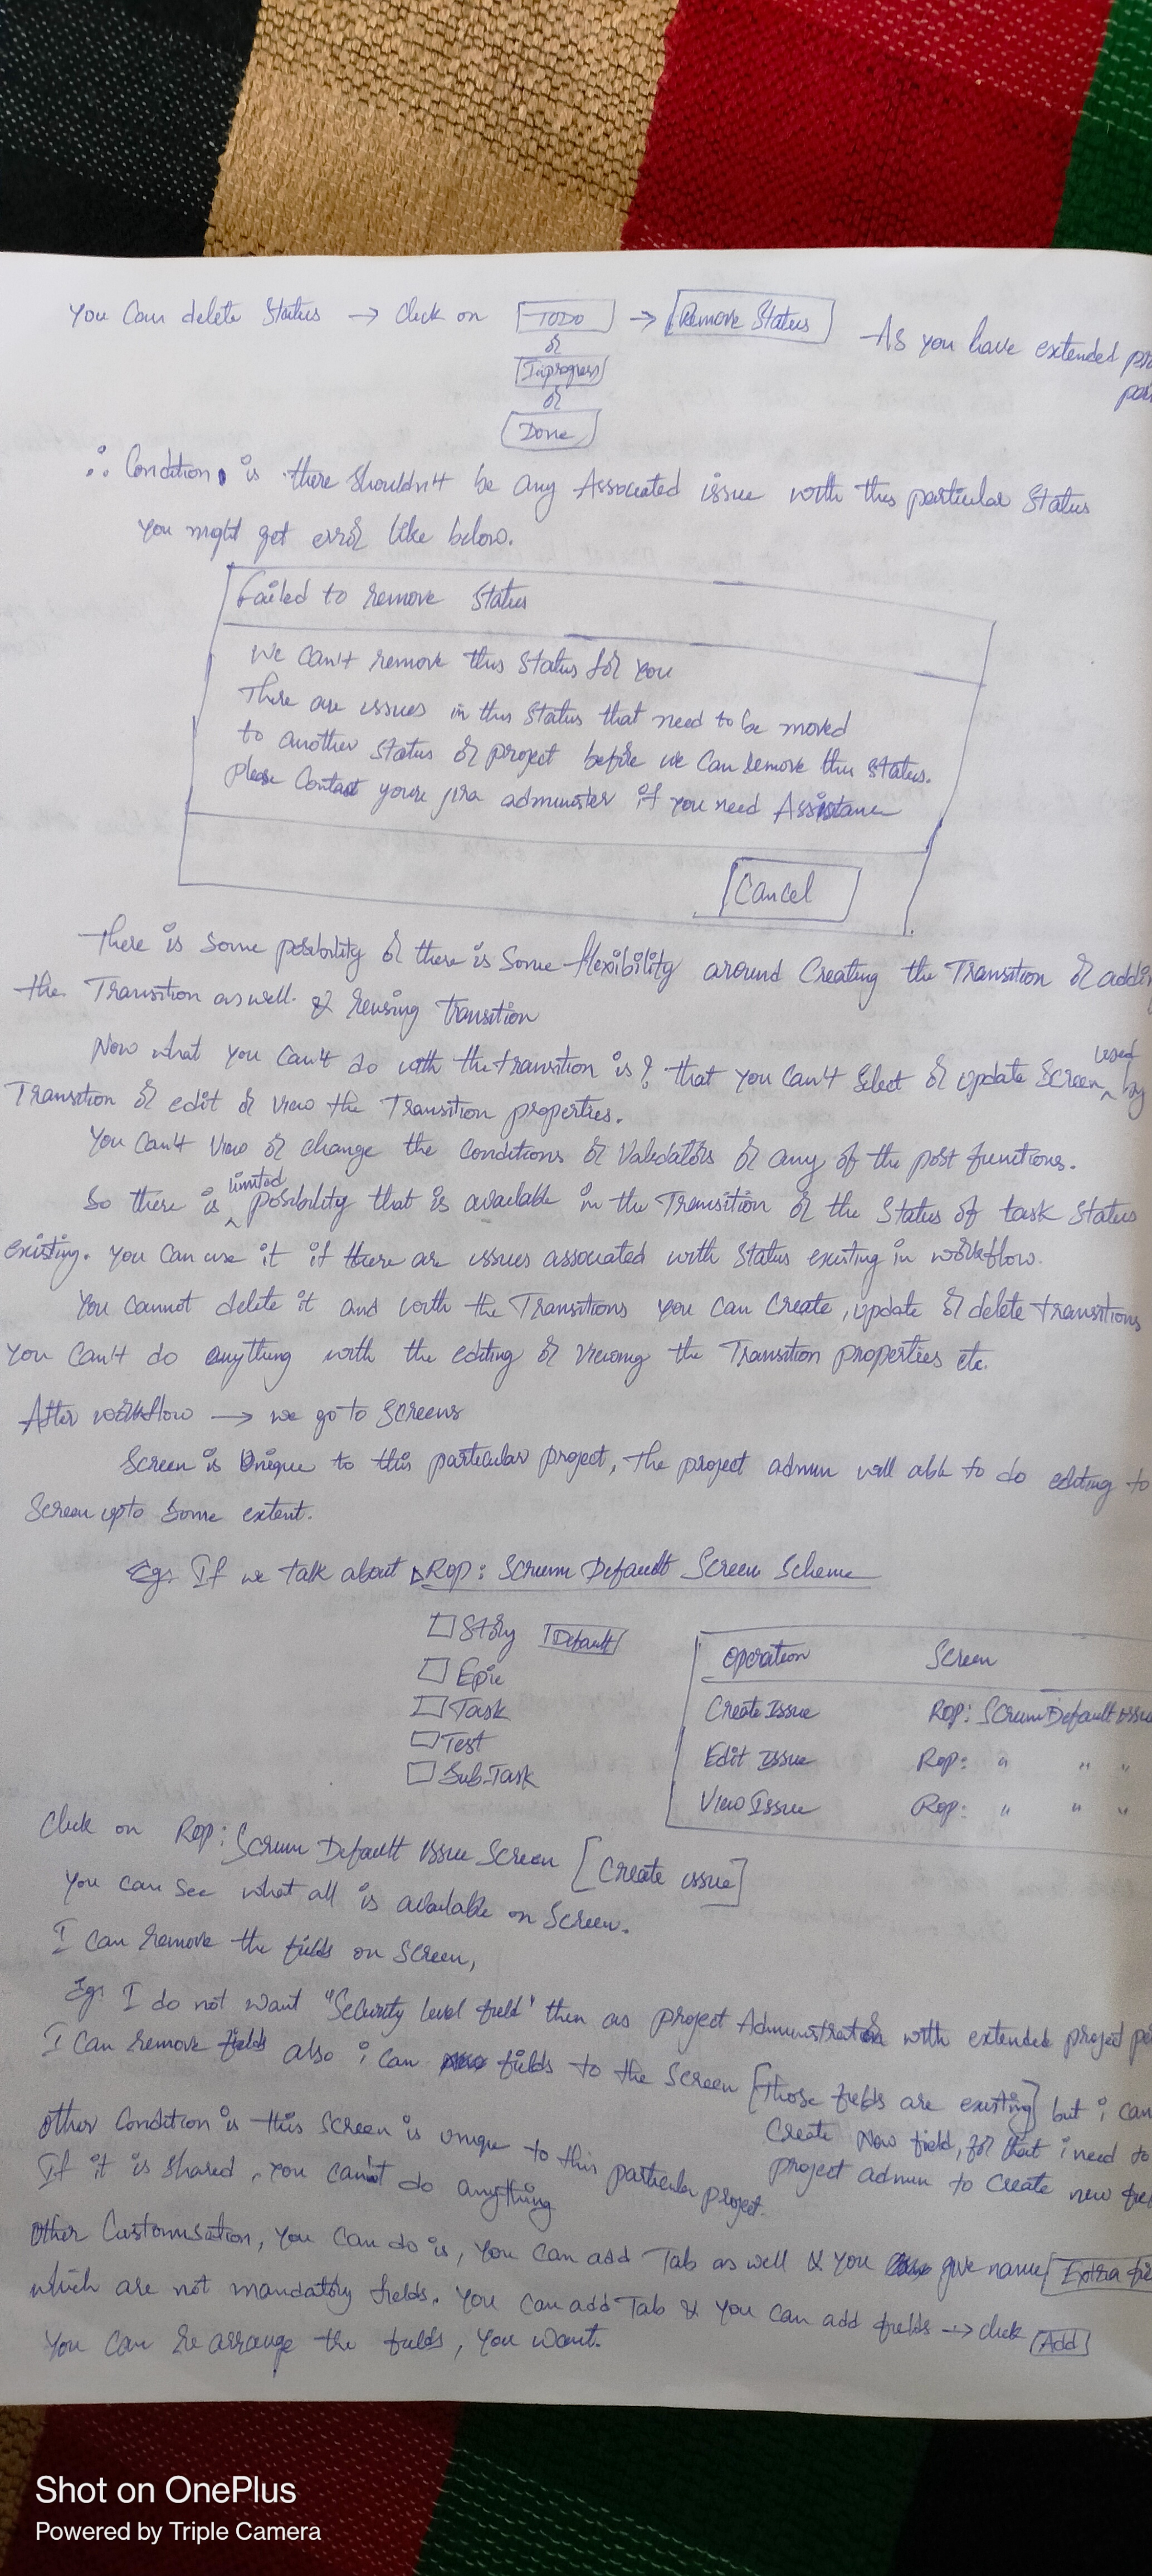 You Can delete Status → Click on [TODO] → [Remove Status] As you have extended
or
[Inprogress]
or
[Done]
∴ Condition is there shouldn't be any Associated issue with this particular Status
You might get error like below.
Failed to remove Status
We can't remove this Status for you
There are issues in this Status that need to be moved
to another Status or project before we Can remove this status.
please Contact youre jira administer if you need Assistance
[Cancel]
There is some posibility or there is Some flexibility around Creating the Transition or
the Transition as well. & reusing transition
Now what you Can't do with the transition is? that you Can't Select or update Screen used by
Transition or edit or view the Transition properties.
You Can't View or change the Conditions or Validators or any of the post functions.
So there is limited posibility that is available in the Transition or the Status of task Status
existing. You Can use it if there are issues associated with Status existing in workflow.
You Cannot delete it and with the Transitions you Can Create, update or delete transitions
You Can't do anything with the editing or Viewing the Transition properties etc.
After workflow → we go to Screens
Screen is Unique to this particular project, the project admin will able to do editing to
Screen upto Some extent.
Eg: If we talk about Rop: Scrum Default Screen Scheme
Story [Default]
Epic
Task
Test
Sub-Task
Operation Screen
Create Issue Rop: Scrum Default
Edit Issue Rop: " " "
View Issue Rop: " " "
Click on Rop: Scrum Default Issue Screen [Create issue]
You can See what all is available on Screen.
I Can remove the fields on Screen,
Eg: I do not want "Security level field" then as project Administrator with extended project
I Can remove fields also i can fields to the Screen [those fields are existing] but i can
Create New field, for that i need to
project admin to Create new
other Condition is this Screen is unique to this particular project.
If it is Shared, you cannot do anything
other Customisation, you can do is, you can add Tab as well & you give name [Extra
which are not mandatory fields. You Can add Tab & you can add fields → click [Add]
You Can re arrange the fields, you want.
Shot on OnePlus
Powered by Triple Camera